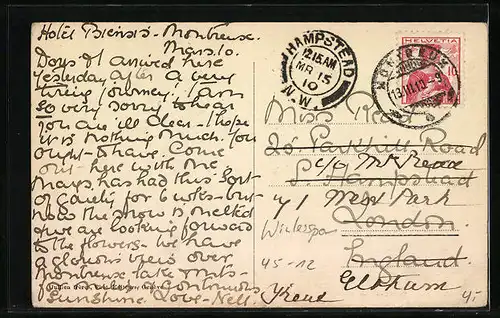 Hotel Biensis - Montreux.
Mars. 10.
Days I arrived here
Yesterday after a very
tiring journey. I am
so very sorry to hear
you are ill dear - I hope
it is nothing much. You
ought to have come
out here with me
Mays has had this sort
of gaiety for 6 weeks - but
now the snow is melted
& we are looking forward
to the flowers - we have
a glorious view over
Montreux lake & mts -
Continuous
Sunshine. Love - Nell.
HAMPSTEAD
12.15 AM
MR 15
10
N.W.
HELVETIA
10
MONTREUX
13.III.10.-9
Miss Reece
25 Parkhill Road
c/o Mrs Reece
S. Hampstead
41 West Park
London
Wintersport
England
45-12
Eltham